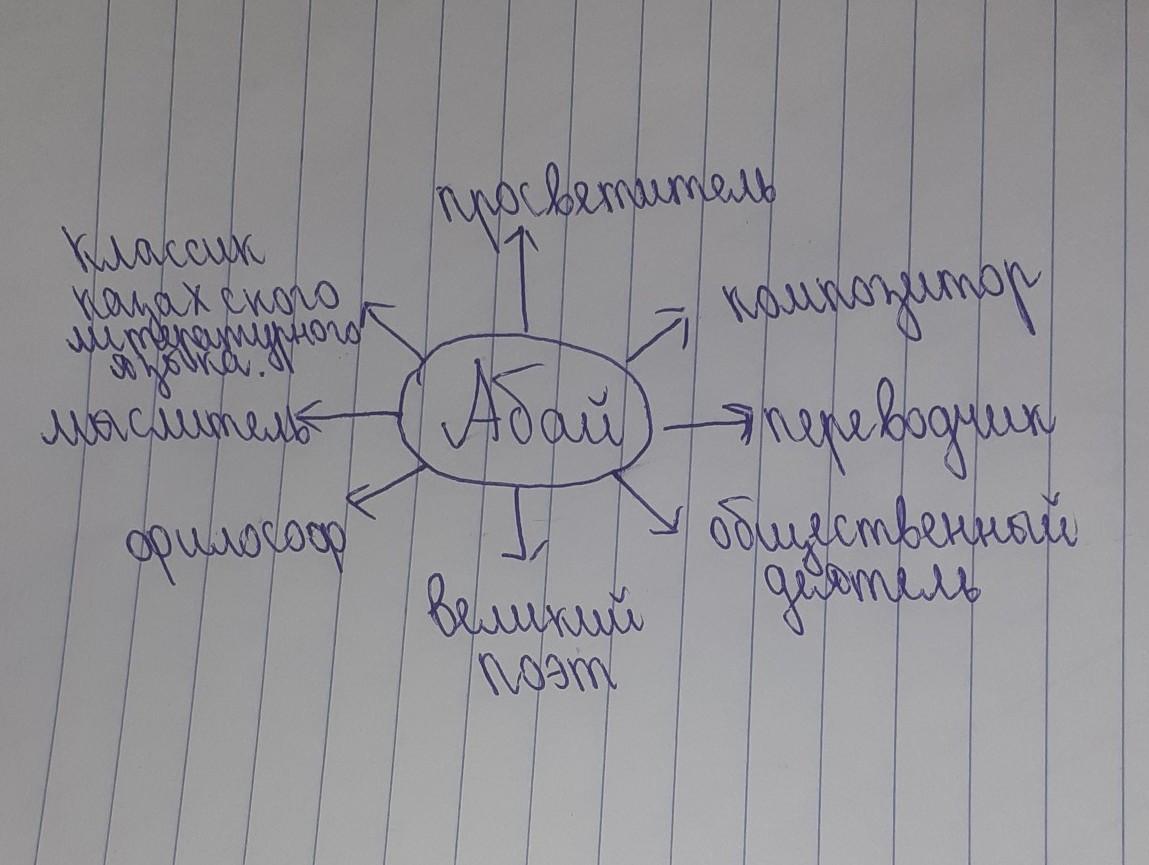 просветитель
классик
казахского
литературного
языка.
композитор
мыслитель
Абай
переводчик
философ
общественный
деятель
великий
поэт